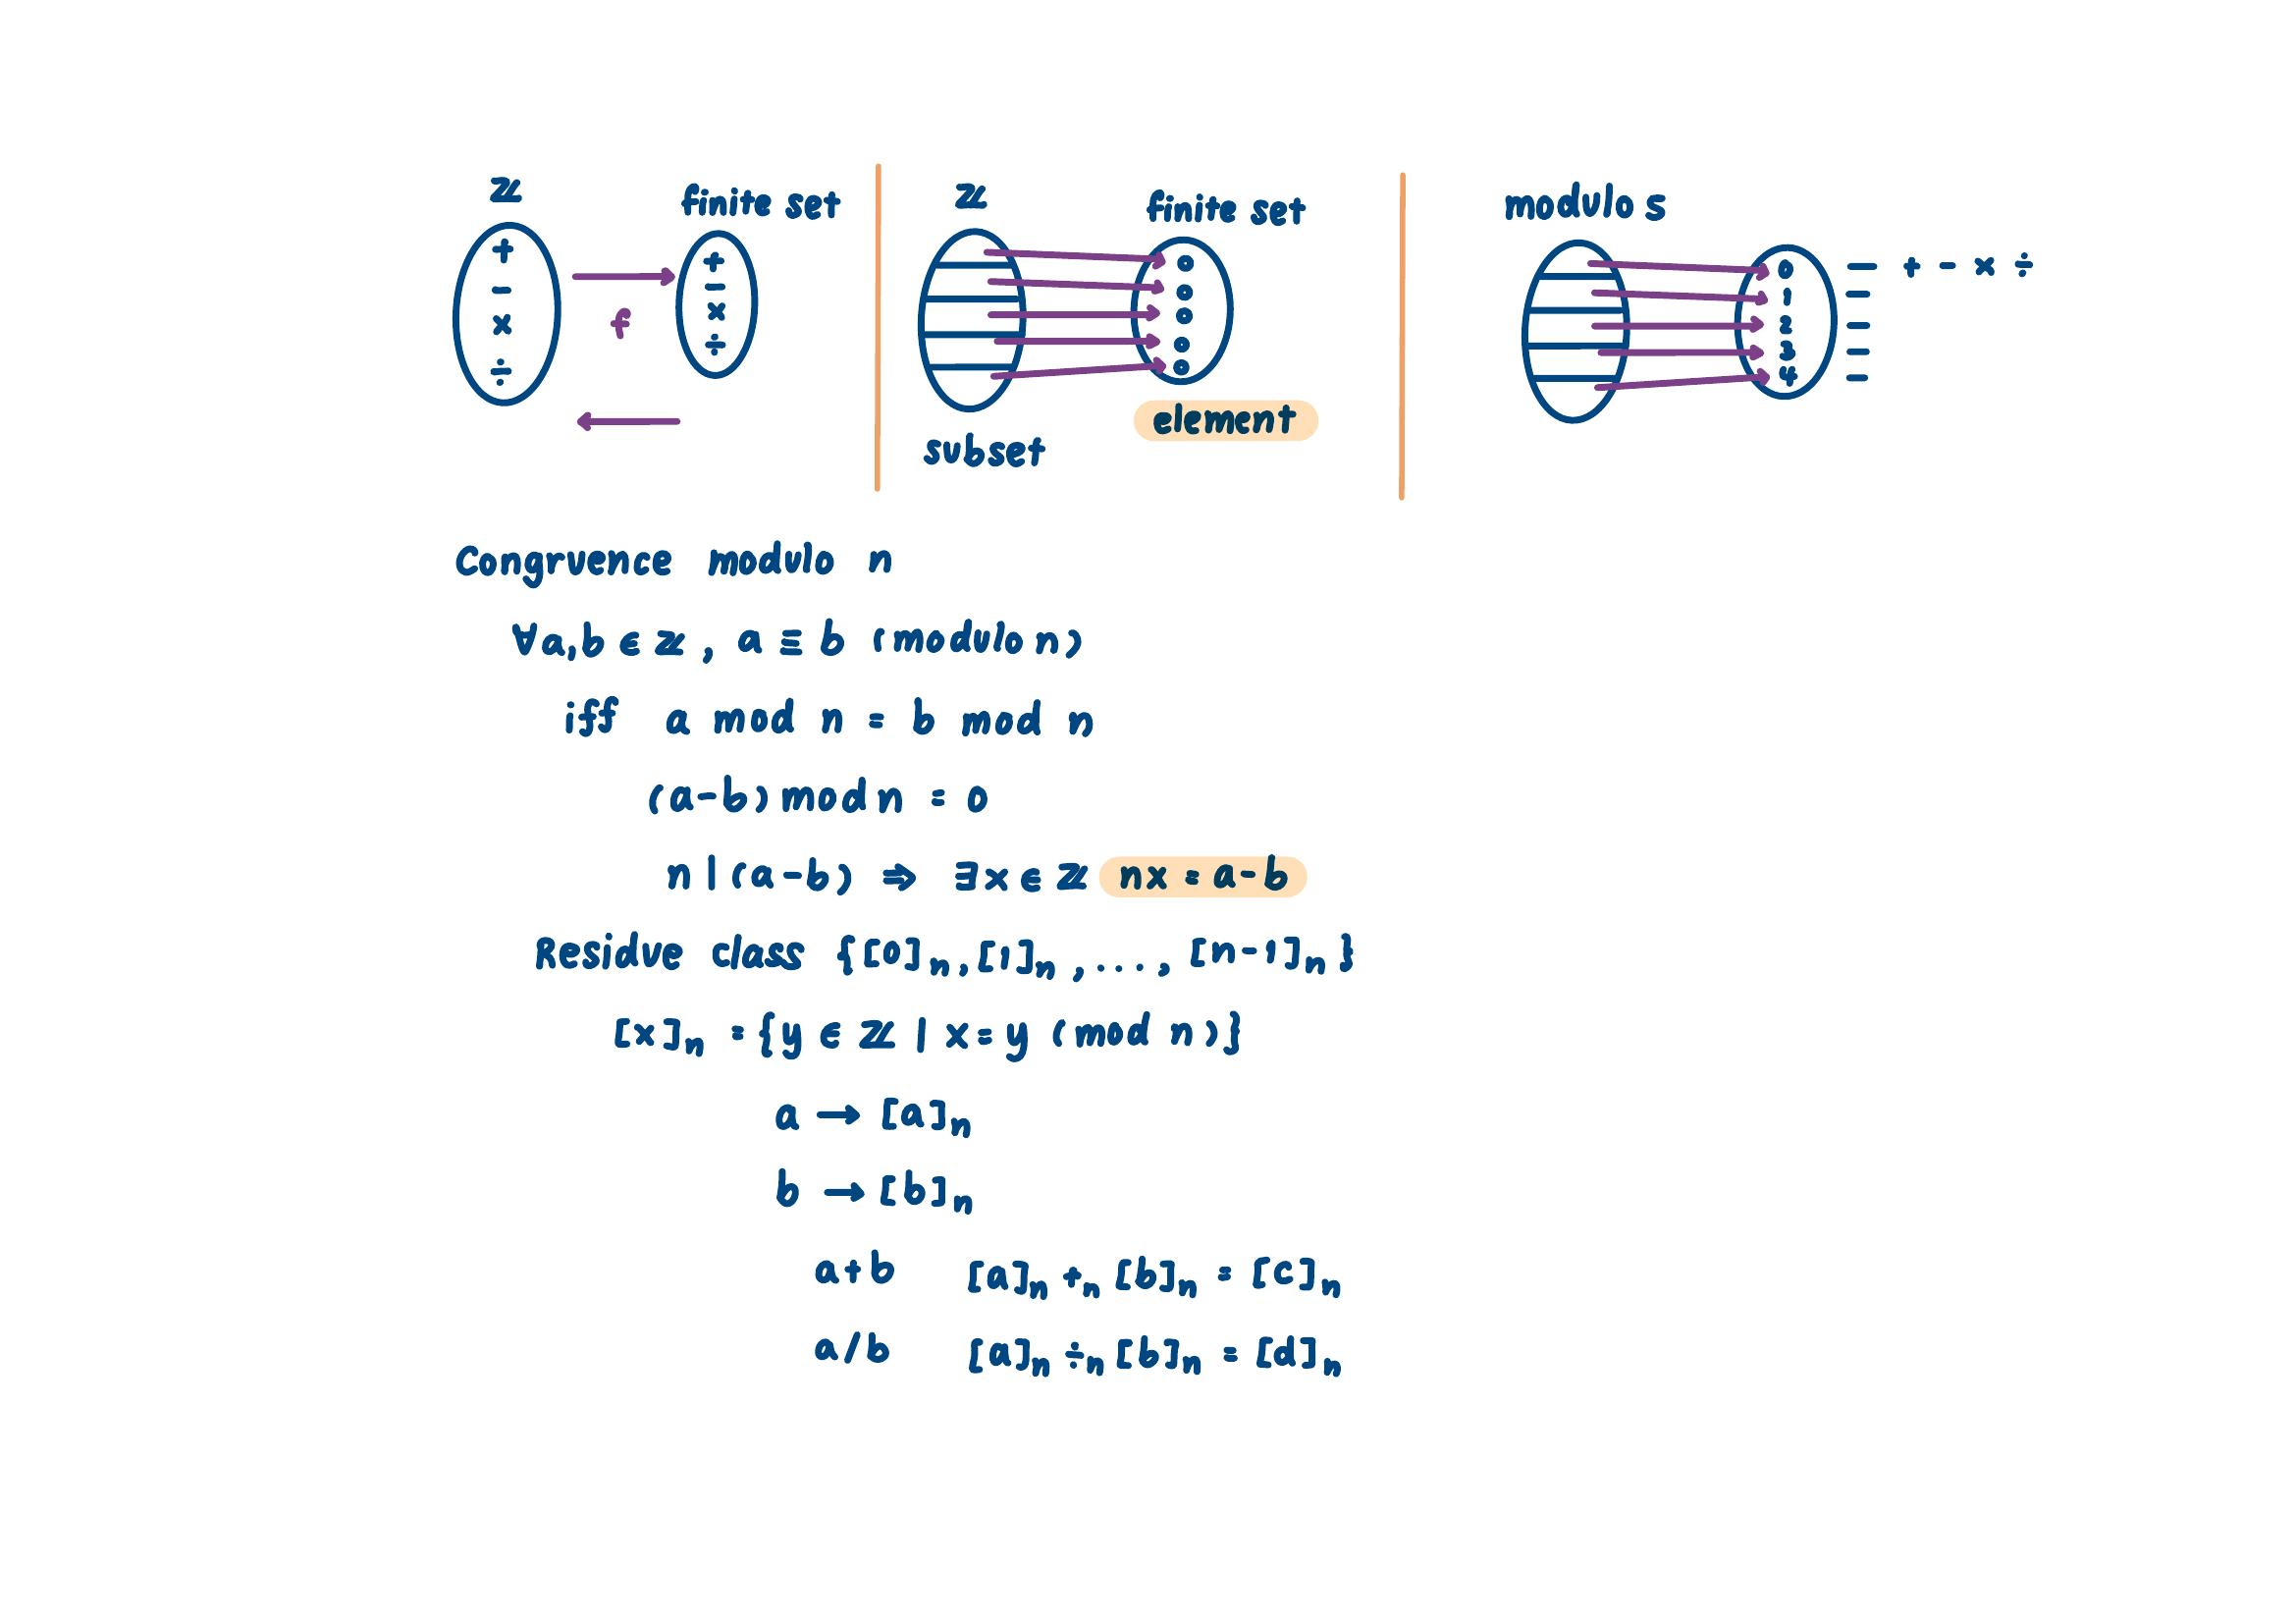 ℤ
+
−
×
÷
f
finite set
+
−
×
÷
ℤ
subset
finite set
o
o
o
o
o
element
modulo 5
0 — + − × ÷
1 —
2 —
3 —
4 —
Congruence modulo n
∀a,b ∈ ℤ, a ≡ b (modulo n)
iff a mod n = b mod n
(a-b) mod n = 0
n | (a-b) ⇒ ∃x ∈ ℤ nx = a-b
Residue class {[0]ₙ, [1]ₙ, ..., [n-1]ₙ}
[x]ₙ = {y ∈ ℤ | x = y (mod n)}
a → [a]ₙ
b → [b]ₙ
a+b [a]ₙ +ₙ [b]ₙ = [c]ₙ
a/b [a]ₙ ÷ₙ [b]ₙ = [d]ₙ